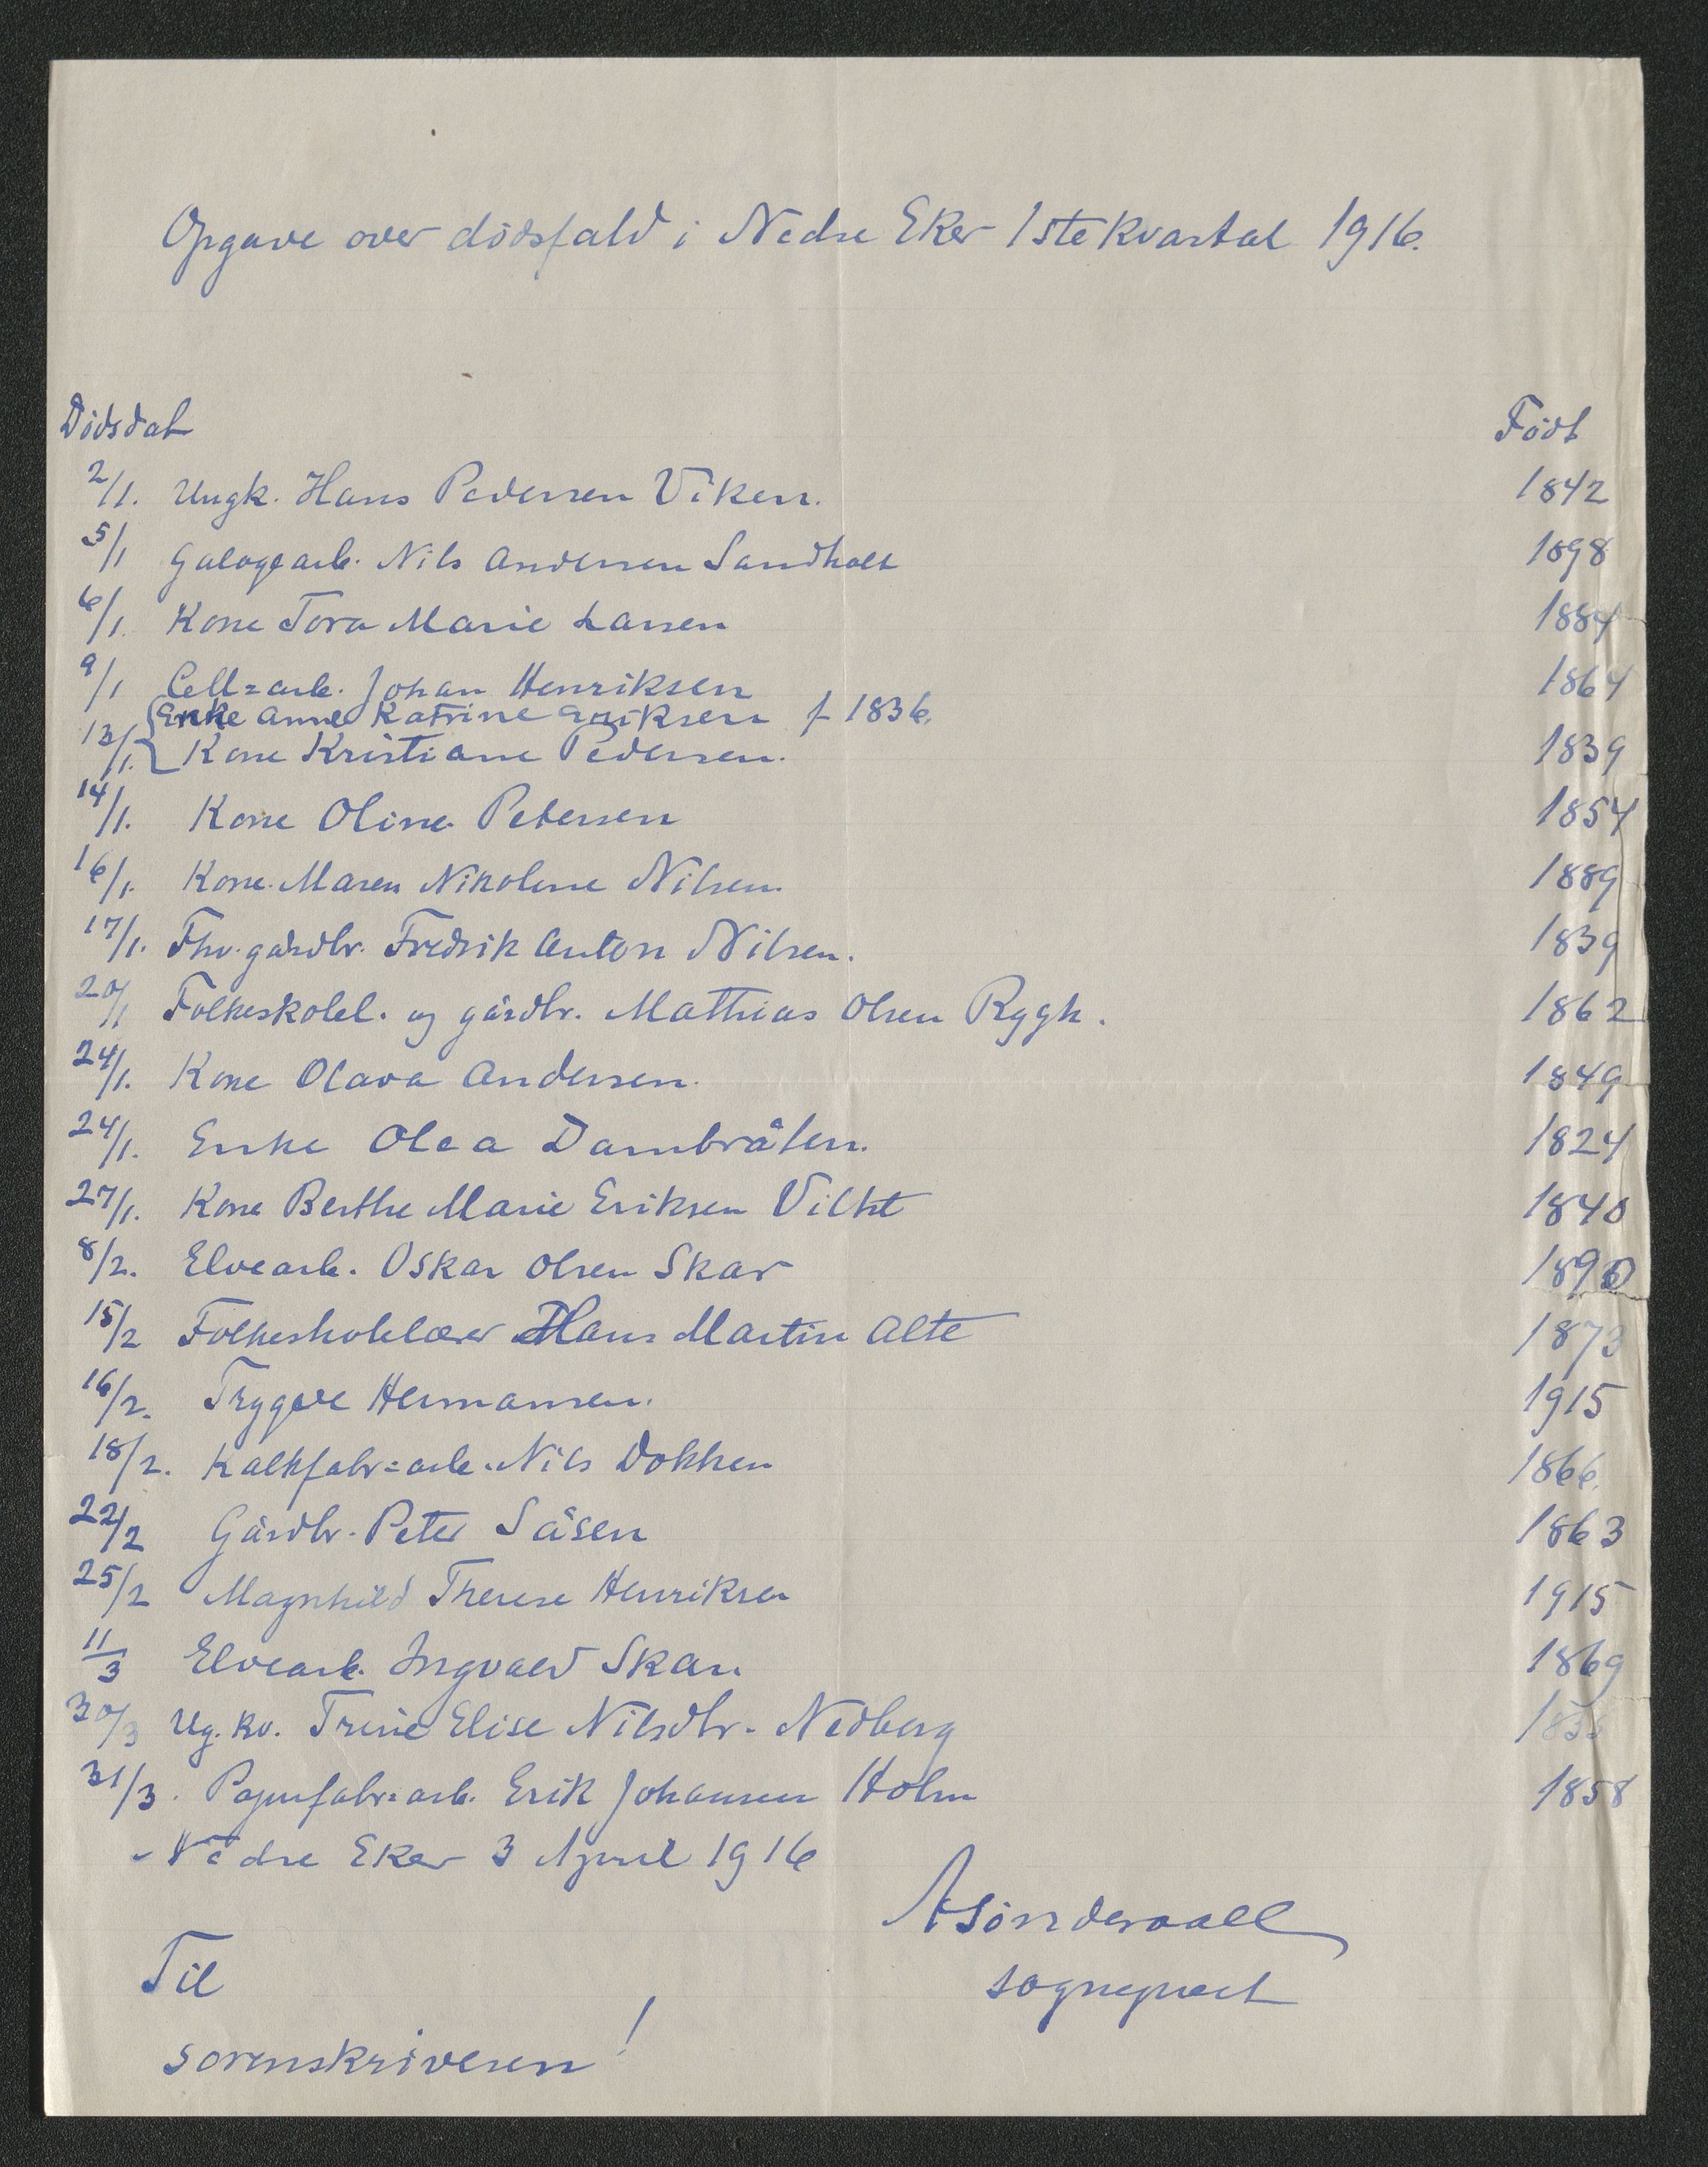 Opgave over dødsfald i Nedre Eker 1ste kvartal 1916.
Dødsdat Født
2/1. Ungk. Hans Pedersen Viken. 1842
5/1 Galogearb. Nils Andersen Sandholt 1898
6/1. Kone Tora Marie Larsen 1884
9/1 Cell=arb. Johan Henriksen 1864
Enke Anne Katrine Eriksen f 1836.
13/1. Kone Kristiane Pedersen. 1839
14/1. Kone Oline Petersen 1854
16/1. Kone Maren Nikoline Nilsen. 1889
17/1. Fhv. gårdbr. Fredrik Anton Nilsen. 1839
20/1 Folkeskolel. og gårdbr. Mathias Olsen Rygh. 1862
24/1. Kone Olava Andersen. 1849
24/1. Enke Olea Dambråten. 1824
27/1. Kone Berthe Marie Eriksen Vilht 1840
8/2. Elvearb. Oskar Olsen Skar 1890
15/2 Folkeskolelærer Hans Martin Alte 1873
16/2. Trygve Hermansen. 1915
18/2. Kalkfabr=arb. Nils Dokken 1866.
22/2 Gårdbr. Peter Såsen 1863
25/2 Magnhild Therese Henriksen 1915
11/3 Elvearb. Ingvald Skar. 1869
30/3 Ug. kv. Trine Elise Nilsdtr. Nedberg
31/3. Papirfabr=arb. Erik Johansen Holm 1858
Nedre Eker 3 April 1916
ASønderaall
sogneprest
Til
sorenskriveren!